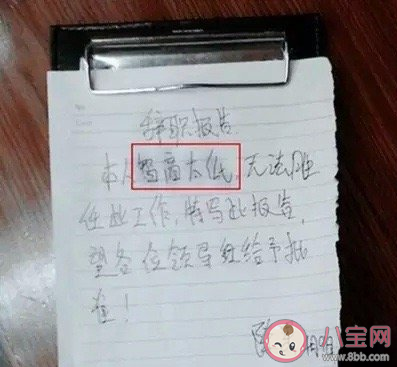 辞职报告
本人智商太低,无法胜
任此工作,特写此报告,
望各位领导给予批
准!
八宝网
www.8bb.com